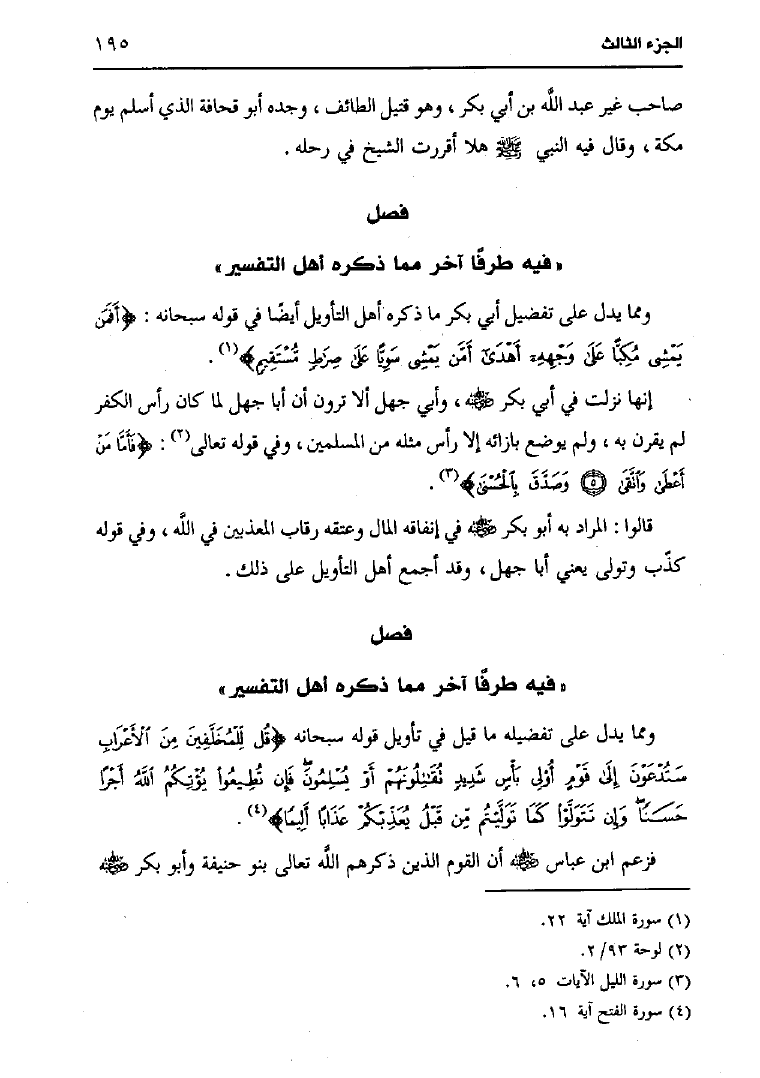 الجزء الثالث
١٩٥
صاحب غير عبد اللَّه بن أبي بكر ، وهو قتيل الطائف ، وجده أبو قحافة الذي أسلم يوم
مكة ، وقال فيه النبي ﷺ هلا أقررت الشيخ في رحله .
فصل
« فيه طرفًا آخر مما ذكره أهل التفسير »
ومما يدل على تفضيل أبي بكر ما ذكره أهل التأويل أيضًا في قوله سبحانه : ﴿أَفَمَن
يَمْشِى مُكِبًّا عَلَىٰ وَجْهِهِۦٓ أَهْدَىٰٓ أَمَّن يَمْشِى سَوِيًّا عَلَىٰ صِرَٰطٍ مُّسْتَقِيمٍ﴾(١) .
إنها نزلت في أبي بكر رضي الله عنه ، وأبي جهل ألا ترون أن أبا جهل لما كان رأس الكفر
لم يقرن به ، ولم يوضع بازائه إلا رأس مثله من المسلمين ، وفي قوله تعالى(٢) : ﴿فَأَمَّا مَنْ
أَعْطَىٰ وَٱتَّقَىٰ ۝٥ وَصَدَّقَ بِٱلْحُسْنَىٰ﴾(٣) .
قالوا : المراد به أبو بكر رضي الله عنه في إنفاقه المال وعتقه رقاب المعذبين في اللَّه ، وفي قوله
كذّب وتولى يعني أبا جهل ، وقد أجمع أهل التأويل على ذلك .
فصل
« فيه طرفًا آخر مما ذكره أهل التفسير »
ومما يدل على تفضيله ما قيل في تأويل قوله سبحانه ﴿قُل لِّلْمُخَلَّفِينَ مِنَ ٱلْأَعْرَابِ
سَتُدْعَوْنَ إِلَىٰ قَوْمٍ أُو۟لِى بَأْسٍ شَدِيدٍ تُقَٰتِلُونَهُمْ أَوْ يُسْلِمُونَ ۖ فَإِن تُطِيعُوا۟ يُؤْتِكُمُ ٱللَّهُ أَجْرًا
حَسَنًا ۖ وَإِن تَتَوَلَّوْا۟ كَمَا تَوَلَّيْتُم مِّن قَبْلُ يُعَذِّبْكُمْ عَذَابًا أَلِيمًا﴾(٤) .
فزعم ابن عباس رضي الله عنه أن القوم الذين ذكرهم اللَّه تعالى بنو حنيفة وأبو بكر رضي الله عنه
(١) سورة الملك آية ٢٢.
(٢) لوحة ٢/٩٣.
(٣) سورة الليل الآيات ٥، ٦.
(٤) سورة الفتح آية ١٦.